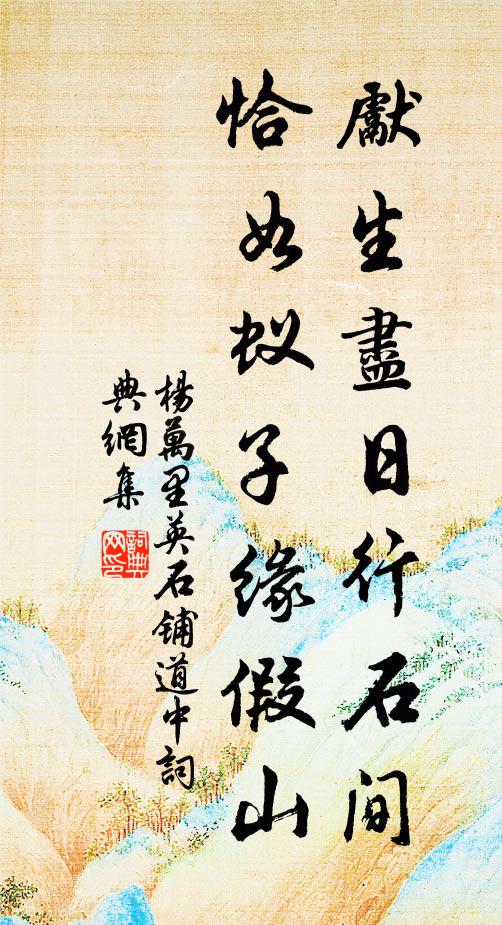 獻生盡日行石間
恰如蚁子緣假山
楊萬里英石鋪道中詞
典網集
詞典
网印